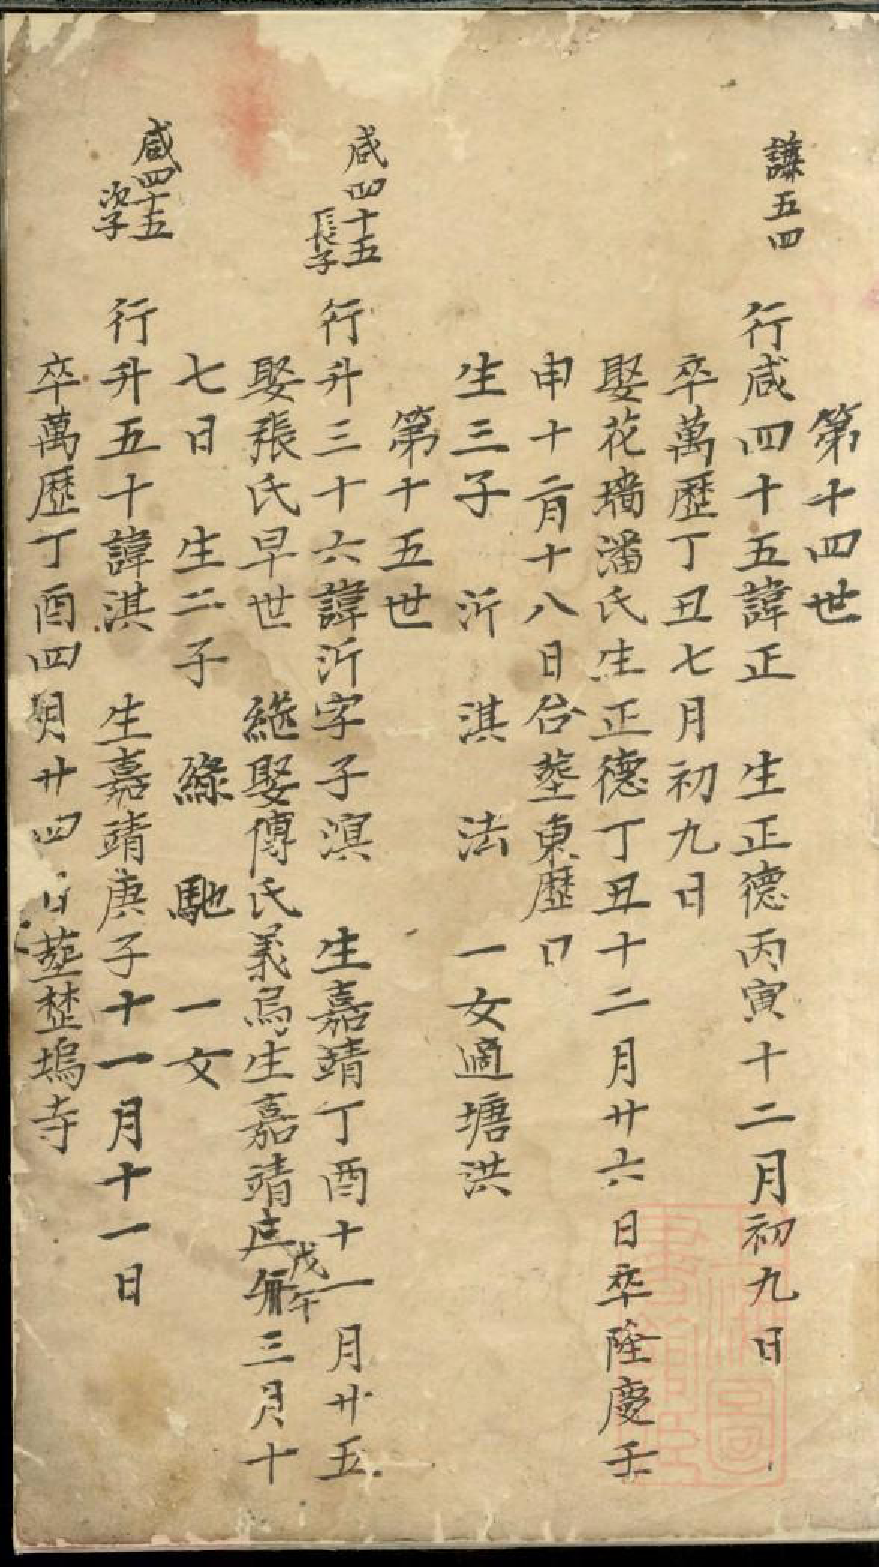 第十四世
謙五四　行咸四十五諱正　生正德丙寅十二月初九日
卒萬歷丁丑七月初九日
娶花墻潘氏生正德丁丑十二月廿六日卒隆慶壬
申十二月十八日合塟東歷口
生三子　沂　淇　法　一女適塘洪
第十五世
咸四十五長子　行升三十六諱沂字子溟　生嘉靖丁酉十一月廿五
娶張氏早世　継娶傳氏義烏生嘉靖戊午三月十
七日　生二子　綠　馳　一女
咸四十五次子　行升五十諱淇　生嘉靖庚子十一月十一日
卒萬歷丁酉四月廿四日塟塟塢寺